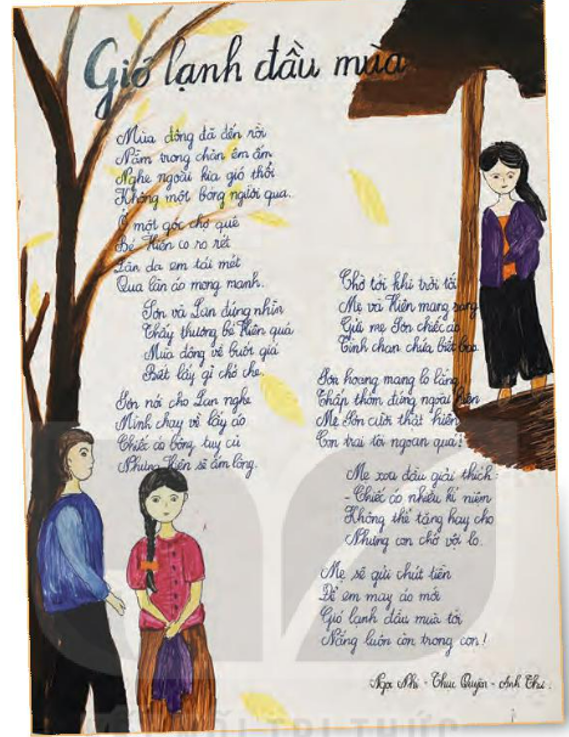 Gió lạnh đầu mùa
Mùa đông đã đến rồi
Nằm trong chăn êm ấm
Nghe ngoài kia gió thổi
Không một bóng người qua...
Ở một góc chợ quê
Bé Hiên co ro rét
Làn da em tái mét
Qua làn áo mong manh.
Sơn và Lan đứng nhìn
Thấy thương bé Hiên quá
Mùa đông về buốt giá
Biết lấy gì chở che.
Sơn nói cho Lan nghe
Mình chạy về lấy áo
Chiếc áo bông tuy cũ
Nhưng Hiên sẽ ấm lòng.
Chờ tới khi trời tối
Mẹ và Hiên mang sang
Gửi mẹ Sơn chiếc áo
Tình chan chứa biết bao
Sơn hoang mang lo lắng
Thấp thỏm đứng ngoài hiên
Mẹ Sơn cười thật hiền
Con trai tôi ngoan quá!
Mẹ xoa đầu giải thích:
- Chiếc áo nhiều kỉ niệm
Không thể tặng hay cho
Nhưng con chớ vội lo.
Mẹ sẽ gửi chút tiền
Để em may áo mới
Gió lạnh đầu mùa tới
Nắng luôn còn trong con!
Ngọc Nhi - Thục Quyên - Anh Thư.
TRI THỨC